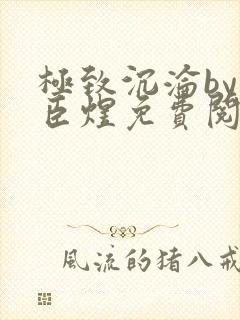 極致沉淪by
臣煋免費閱
風流的猪八戒